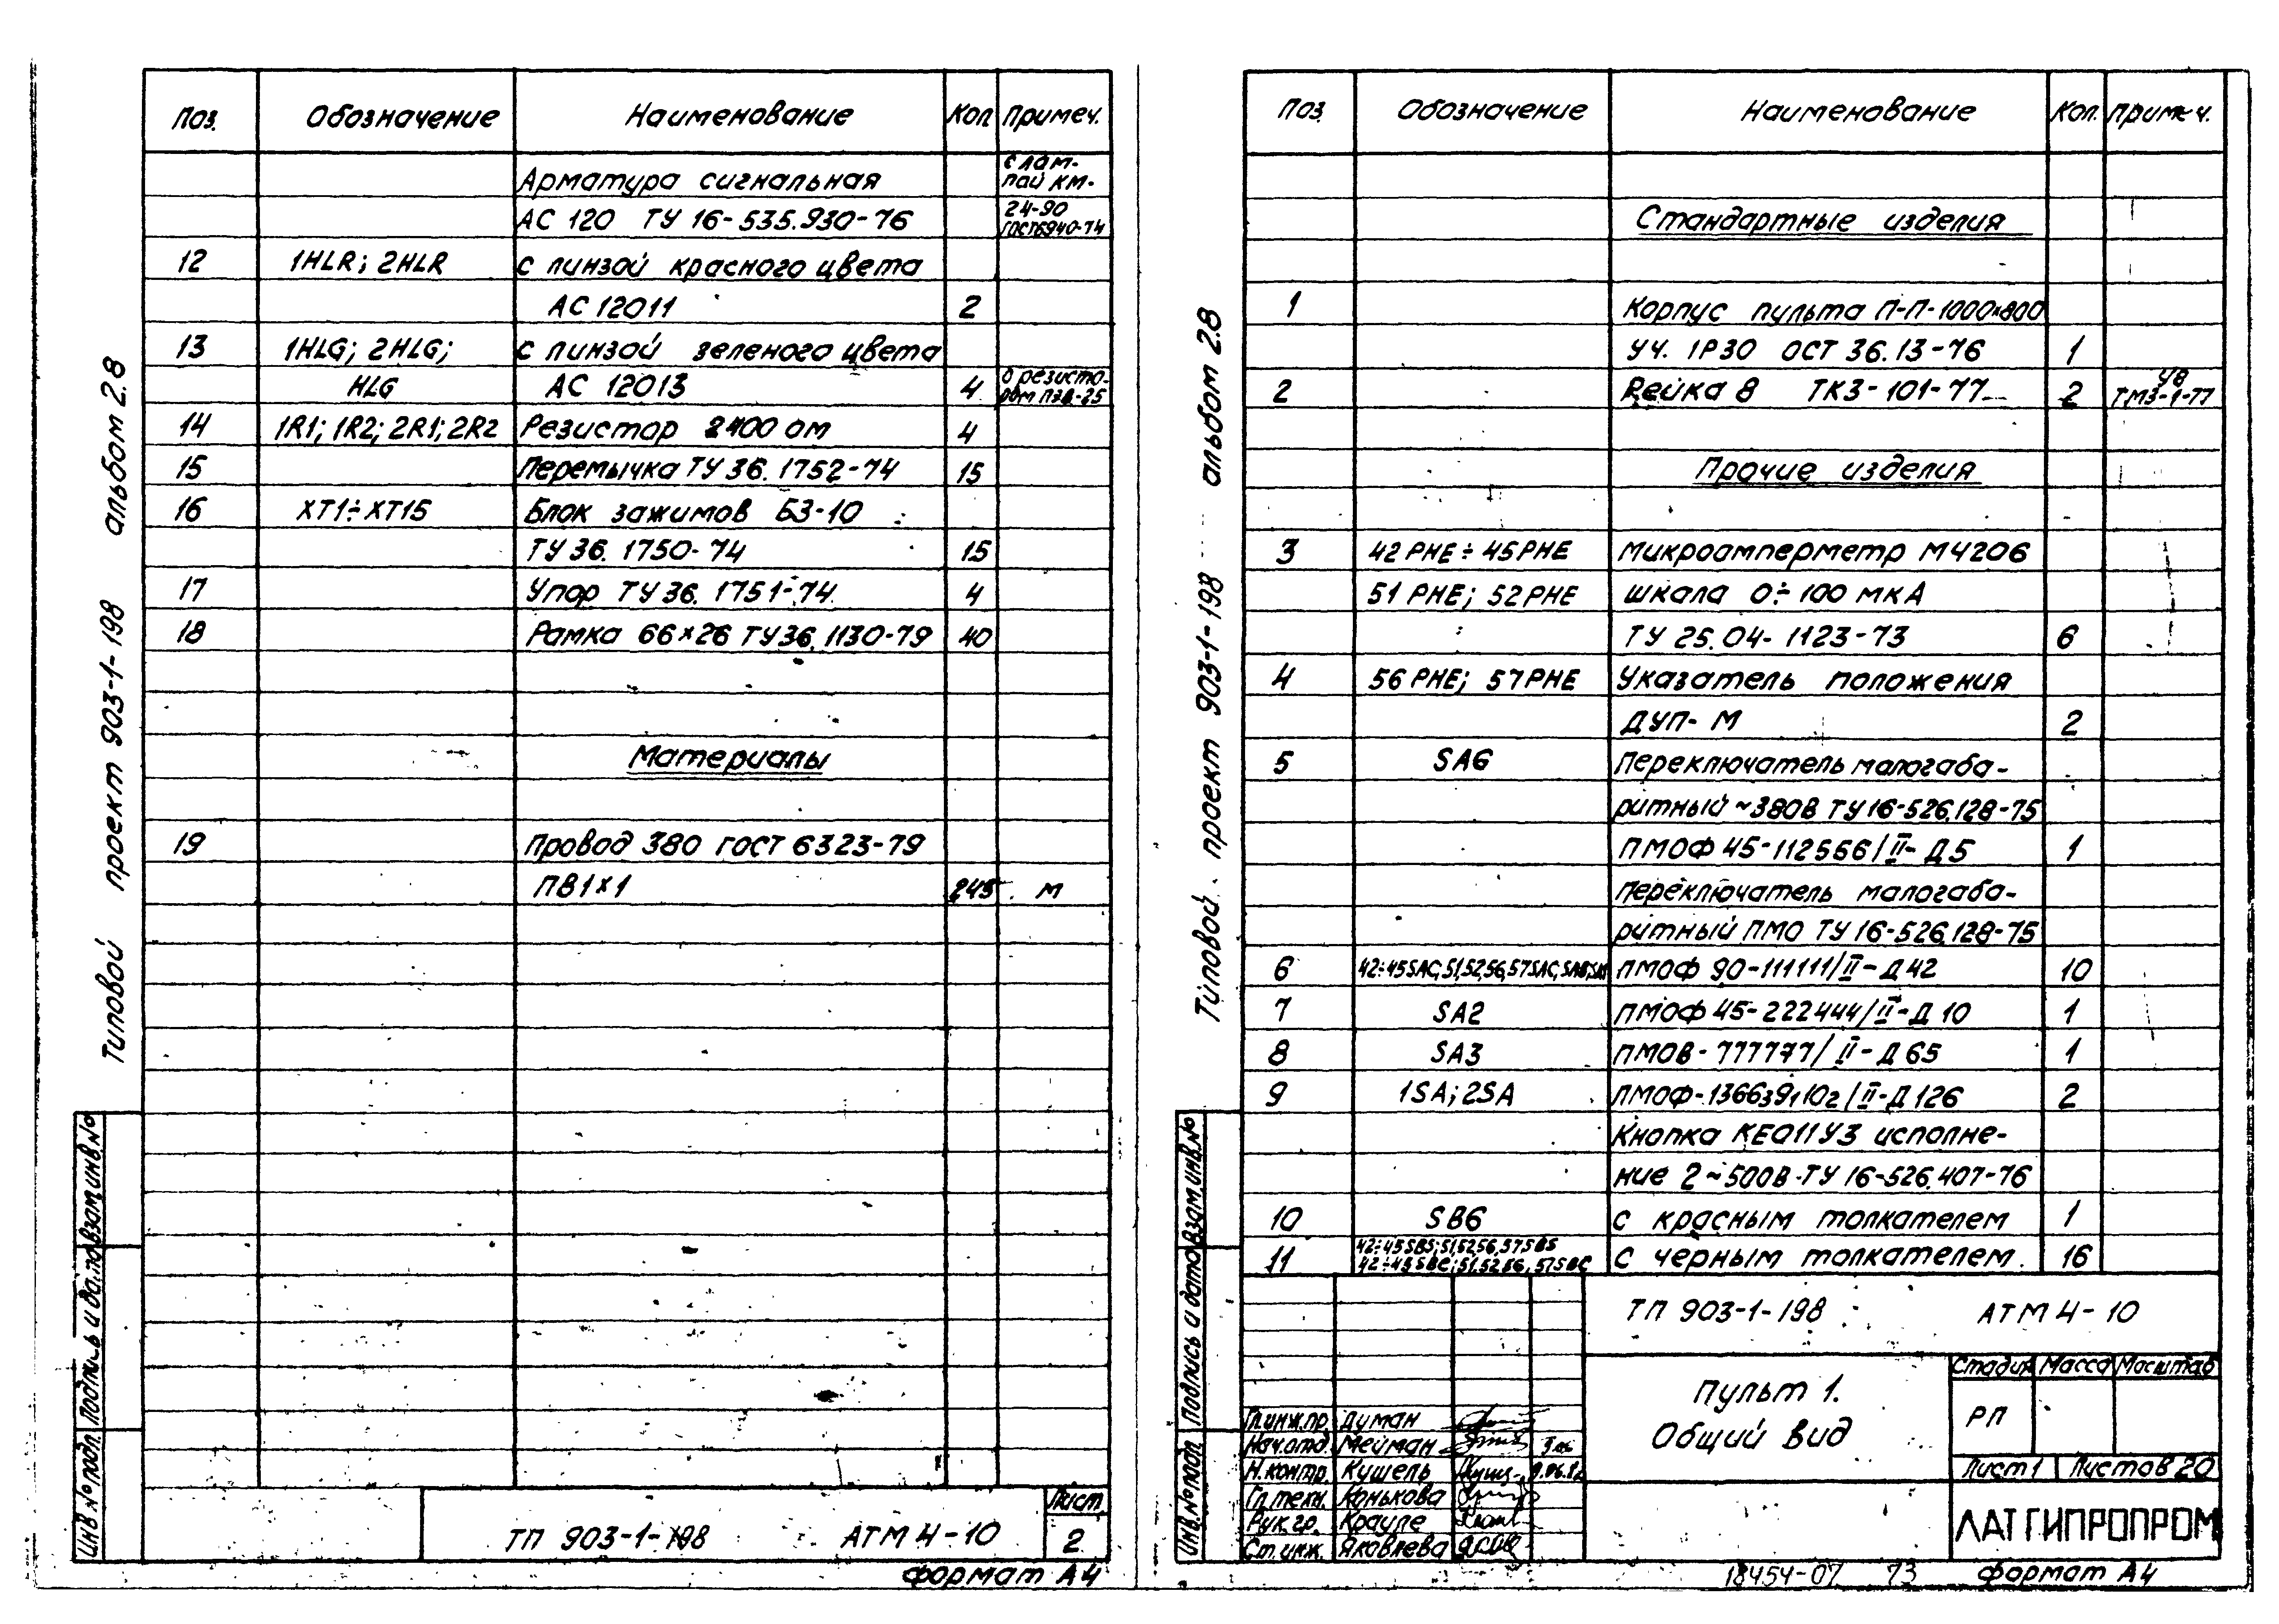 Поз. Обозначение Наименование Кол Примеч.
Арматура сигнальная с лам-
пой КМ-
АС 120 ТУ 16-535.930-76 24-90
ГОСТ6940-74
12 1HLR; 2HLR с линзой красного цвета
АС 12011 2
13 1HLG; 2HLG; с линзой зеленого цвета
HLG АС 12013 4 с резисто-
ром ПЭВ-25
14 1R1; 1R2; 2R1; 2R2 Резистор 2400 ом 4
15 Перемычка ТУ 36.1752-74 15
16 XT1÷XT15 Блок зажимов БЗ-10
ТУ 36.1750-74 15
17 Упор ТУ 36.1751-74 4
18 Рамка 66×26 ТУ 36.1130-79 40
Материалы
19 Провод 380 ГОСТ 6323-79
ПВ1×1 245 м
Типовой проект 903-1-198 альбом 2.8
Инв № подл. Подпись и да Взам.инв.№
ТП 903-1-198 АТМ 4-10
Лист
2
формат А4
Поз. Обозначение Наименование Кол. Примеч.
Стандартные изделия
1 Корпус пульта П-П-1000×800
УЧ. 1Р30 ОСТ 36.13-76 1
2 Рейка 8 ТК3-101-77 2 ТМ3-1-77
Прочие изделия
3 42 PHE ÷ 45 PHE Микроамперметр М4206
51 PHE; 52 PHE шкала 0÷100 мкА
ТУ 25.04-1123-73 6
4 56 PHE; 57 PHE Указатель положения
ДУП-М 2
5 SA6 Переключатель малогаба-
ритный ~380В ТУ 16-526.128-75
ПМОФ 45-112566/II-Д5 1
Переключатель малогаба-
ритный ПМО ТУ 16-526.128-75
6 42÷45SAC,51,52,56,57SAC, ПМОФ 90-111111/II-Д42 10
7 SA2 ПМОФ 45-222444/II-Д10 1
8 SA3 ПМОВ-777777/II-Д65 1
9 1SA; 2SA /II-Д126 2
Кнопка КЕ011У3 исполне-
ние 2 ~500В ТУ 16-526.407-76
10 SB6 с красным толкателем 1
11 42÷45SBS;51,52,56,57SBS
42÷45SBC;51,52,56,57SBC с черным толкателем 16
Типовой проект 903-1-198 альбом 2.8
Инв.№подл Подпись и дата Взам.инв.№
ТП 903-1-198 АТМ 4-10
Пульт 1.
Общий вид
Стадия Масса Масштаб
РП
Лист 1 Листов 20
ЛАТГИПРОПРОМ
Гл.инж.пр. Думан
Нач.отд. Мейман
Н.контр. Кушель
Гл.техн. Конькова
Рук.гр. Крауле
Ст.инж. Яковлева
18454-07 73 формат А4